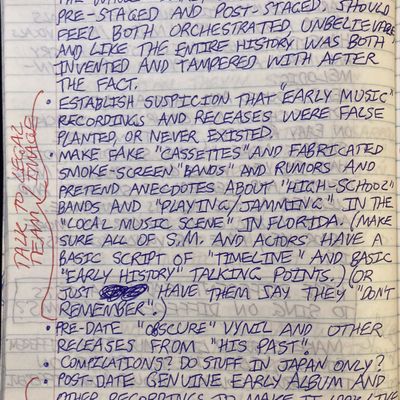 PRE-STAGED AND POST-STAGED. SHOULD
FEEL BOTH ORCHESTRATED, UNBELIEVABLE
AND LIKE THE ENTIRE HISTORY WAS BOTH
INVENTED AND TAMPERED WITH AFTER
THE FACT.
• ESTABLISH SUSPICION THAT "EARLY MUSIC"
RECORDINGS AND RELEASES WERE FALSE
PLANTED, OR NEVER EXISTED.
• MAKE FAKE "CASSETTES" AND FABRICATED
SMOKE-SCREEN "BANDS" AND RUMORS AND
PRETEND ANECDOTES ABOUT "HIGH-SCHOOL"
BANDS AND "PLAYING/JAMMING" IN THE
"LOCAL MUSIC SCENE" IN FLORIDA. (MAKE
SURE ALL OF S.M. AND ACTORS HAVE A
BASIC SCRIPT OF "TIMELINE" AND BASIC
"EARLY HISTORY" TALKING POINTS.) (OR
JUST HAVE THEM SAY THEY "DON'T
REMEMBER".)
• PRE-DATE "OBSCURE" VYNIL AND OTHER
RELEASES FROM "HIS PAST".
• COMPILATIONS? DO STUFF IN JAPAN ONLY?
• POST-DATE GENUINE EARLY ALBUM AND
OTHER RECORDINGS TO MAKE IT LOOK LIKE
TALK TO LEGAL
TEAM